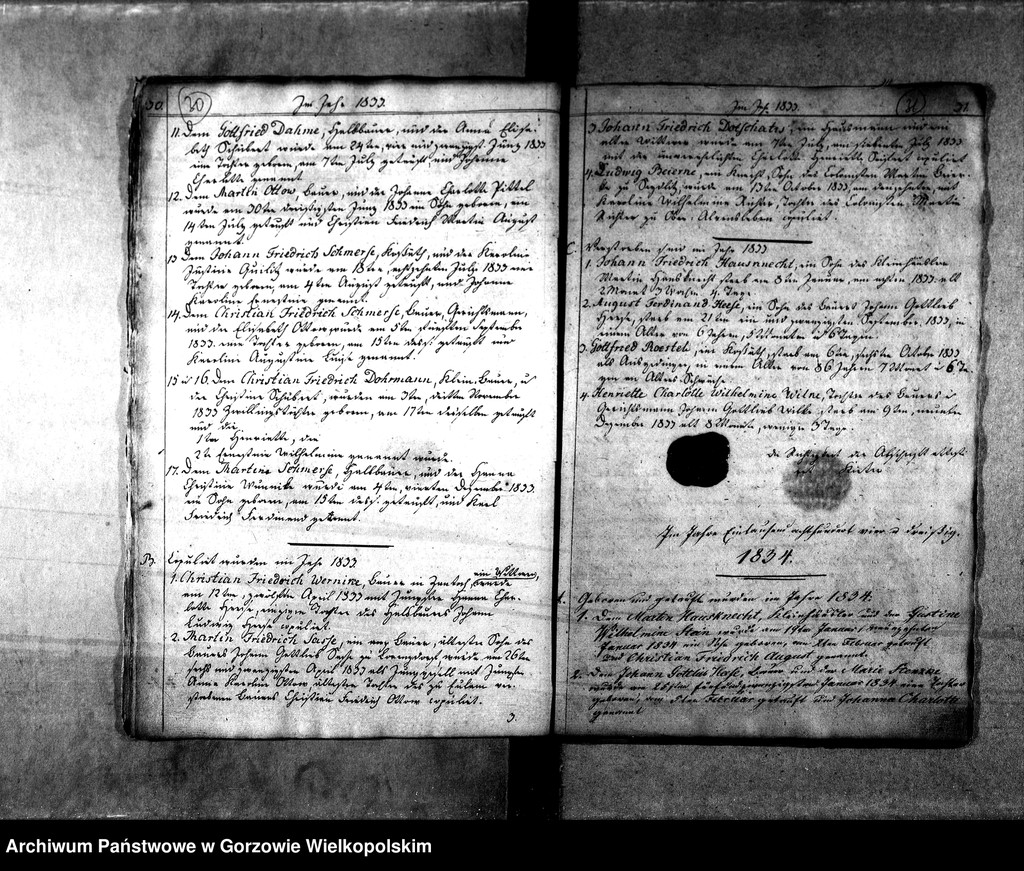 30
30
Im Jahr 1833.
11. Dem Gottfried Dahme, Halbbauer, und der Anna Elisa-
beth Schubert wurde am 24ten, vier und zwanzigsten Juny 1833
eine Tochter geboren, am 7ten July getauft, und Johanne
Charlotte genannt.
12. Dem Martin Ottow, Bauer, und der Johanne Charlotte Pittel
wurde am 30ten dreißigsten Juny 1833 ein Sohn geboren, am
14ten July getauft und Christian Friedrich Martin August
genannt.
13 Dem Johann Friedrich Schmerse, Kossäth, und der Karoline
Justine Quilitz wurde am 18ten, achtzehnten July 1833 eine
Tochter geboren, am 4ten August getauft, und Johanne
Karoline Ernestine genannt.
14. Dem Christian Friedrich Schmerse, Bauer, Gerichtsmann,
und der Elisabeth Ottow wurde am 5ten September
1833. eine Tochter geboren, am 15ten dess. getauft und
Karoline Augustine Luise genannt.
15 u 16. Dem Christian Friedrich Dohrmann, Klein-Bauer, u
der Christine Schubert, wurden am 3ten, dritten November
1833 Zwillingstöchter geboren, am 17ten desselben getauft
und die
1te Henriette, die
2te Ernestine Wilhelmine genannt wurde.
17. Dem Martin Schmerse, Halbbauer, und der Hanna
Christine Wernike wurde am 4ten, vierten Dezember 1833.
ein Sohn geboren, am 15ten dess. getauft, und Karl
Friedrich Ferdinand genannt.
B. Copulirt wurden im Jahr 1833.
1. Christian Friedrich Wernike, Bauer in ein Wittwer, wurde
am 12ten, zwölften April 1833 mit Jungfer Hanna Char-
lotte Heese, einzigen Tochter des Halbbauers Johann
Ludwig Heese copulirt.
2. Martin Friedrich Sasse, ein Bauer, ältester Sohn des
Bauers Johann Gottlieb Sasse zu wurde am 26ten
sechs und zwanzigsten April 1833 als Junggesell mit Jungfer
Anne Karoline Ottow ältesten Tochter des zu ver-
storbenen Bauers Christian Friedrich Ottow copulirt.
3.
Im Jahr 1833.
31
31.
3. Johann Friedrich Dotschates, ein Hausmann und ein
alter Wittwer wurde am 7ten July, am siebenten July 1833
mit der unverehelichten Charlotte Henriette copulirt
4. Ludwig Beierne, ein Knecht, Sohn des Colonisten Martin
zu wurde am 13ten October 1833, am dreizehnten, mit
Karoline Wilhelmine Richter, Tochter des Colonisten Martin
Richter zu copulirt.
C. Verstorben sind im Jahr 1833
1. Johann Friedrich Hausknecht, ein Sohn des Kleinhäußlers
Martin Hausknecht starb am 8ten Januar, am achten 1833. alt
2 Monat 3 Wochen 4 Tage.
2. August Ferdinand Heese, ein Sohn des Bauers Johann Gottlieb
Heese, starb am 21ten ein und zwanzigsten September 1833, in
einem Alter von 6 Jahren, 5 Monaten u 6 Tagen.
3. Gottfried Roestel, ein Kossäth, starb am 6ten, sechsten October 1833
als Ausgedinger, in einem Alter von 86 Jahren 7 Monat u 6 Ta-
gen an Altersschwäche.
4. Henriette Charlotte Wilhelmine Wilke, Tochter des Bauers u
Gerichtsmann Johann Gottlieb Wilke, starb am 9ten, neunten
Dezember 1833 alt 8 Monate, weniger 3 Tage.
die Richtigkeit der Abschrift attestirt
Küster
Im Jahre Eintausend achthundert vier u dreißig.
1834.
A. Geboren und getauft wurden im Jahre 1834.
1. Dem Martin Hausknecht, Kleinhäusler und der Justine
Wilhelmine Stein wurde am 19ten Januar, neunzehnten
Januar 1834 ein Sohn geboren, am 2ten Februar getauft
und Christian Friedrich August genannt.
2. Dem Johann Gottlieb Hase, Bauer und der Marie
wurde am 25sten fünfundzwanzigsten Januar 1834 eine Tochter
geboren, am 5ten Februar getauft und Johanna Charlotte
genannt
Archiwum Państwowe w Gorzowie Wielkopolskim